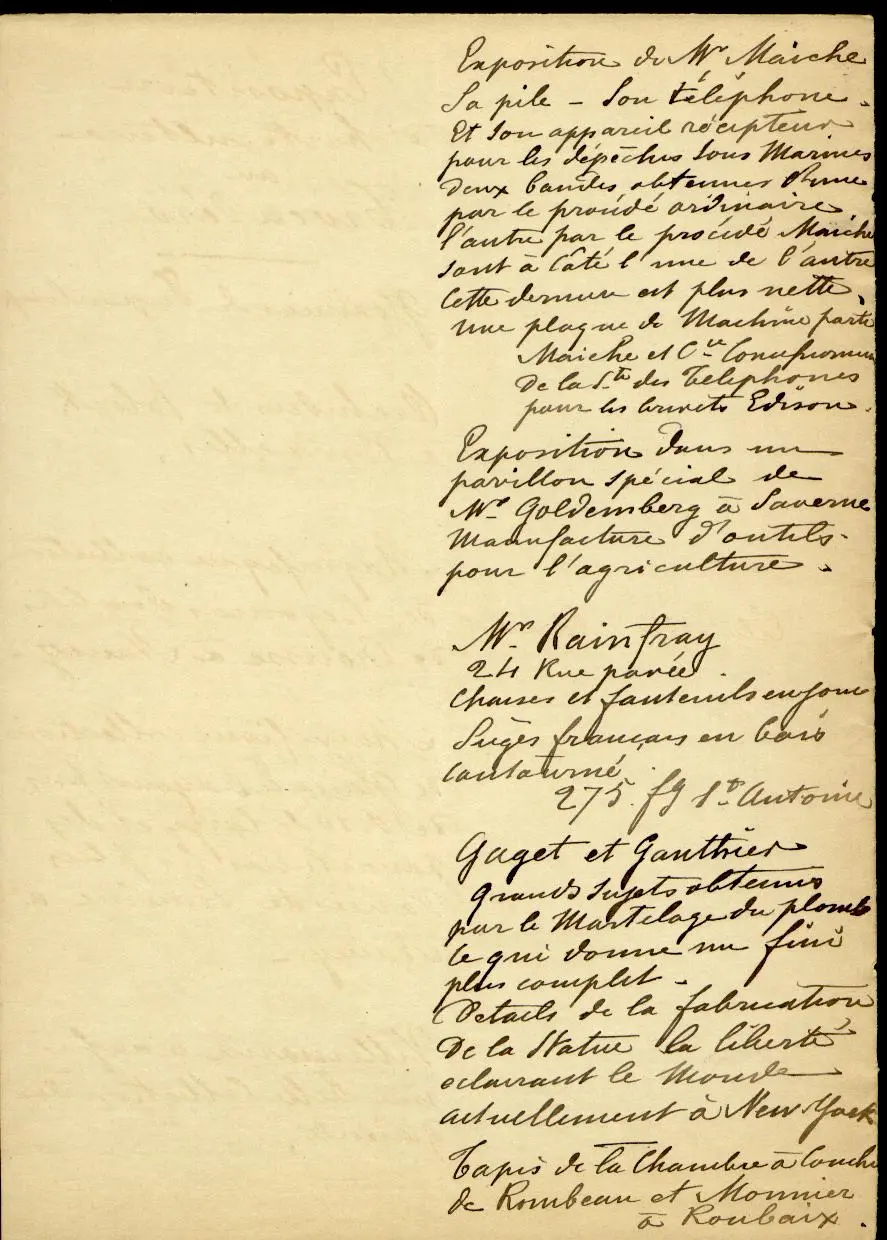 Exposition de Mr Maiche
Sa pile – Son téléphone.
Et Son appareil récepteur
pour les dépêches Sous Marines
Deux bandes obtenues l'une
par le procédé ordinaire
l'autre par le procédé Maiche
sont à Côté l'une de l'autre
Cette dernière est plus nette.
une plaque de Machine porte
Maiche et Cie
De la Sté des Téléphones
pour les brevets Edison.
Exposition Dans un
pavillon spécial de
Mr Goldemberg à Saverne
Manufacture d'outils
pour l'agriculture.
Mr Rainfray
24 Rue pavée.
Chaises et fauteuils en jonc
Sièges français en bois
Contourné.
275. fg St Antoine
Gaget et Gauthier
Grands Sujets obtenus
par le Martelage du plomb
Ce qui donne un fini
plus complet.
Details de la fabrication
De la Statue la liberté
eclairant le Monde
actuellement à New York
Tapis de la Chambre à Coucher
de Rombeau et Monnier
à Roubaix.